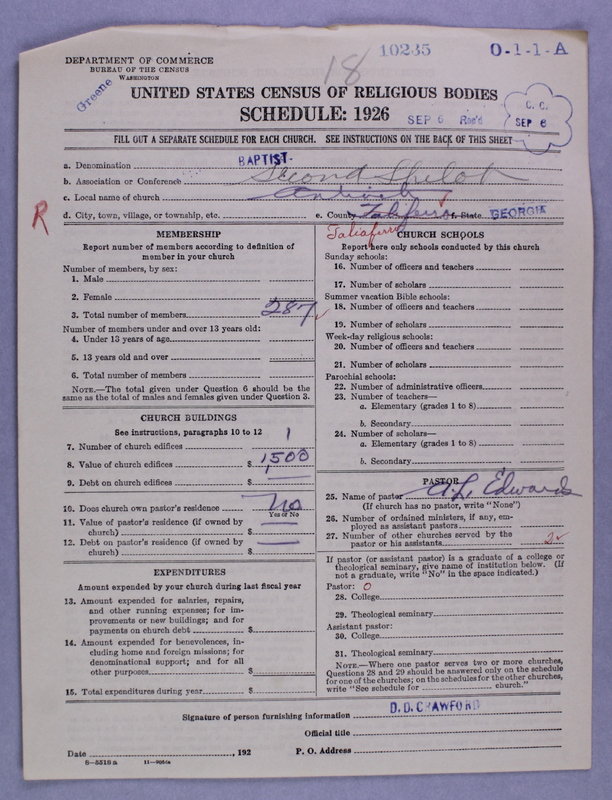 DEPARTMENT OF COMMERCE
BUREAU OF THE CENSUS
WASHINGTON
Greene
18
10235
0-1-1-A
UNITED STATES CENSUS OF RELIGIOUS BODIES
SCHEDULE: 1926
SEP 6 Rec'd
C. C.
SEP 6
FILL OUT A SEPARATE SCHEDULE FOR EACH CHURCH. SEE INSTRUCTIONS ON THE BACK OF THIS SHEET
a. Denomination BAPTIST
b. Association or Conference Second Shiloh
c. Local name of church Antioch
d. City, town, village, or township, etc. e. County Taliaferro f. State GEORGIA
R
Taliaferro
MEMBERSHIP
Report number of members according to definition of
member in your church
Number of members, by sex:
1. Male
2. Female
3. Total number of members 287
Number of members under and over 13 years old:
4. Under 13 years of age
5. 13 years old and over
6. Total number of members
NOTE.—The total given under Question 6 should be the
same as the total of males and females given under Question 3.
CHURCH BUILDINGS
See instructions, paragraphs 10 to 12
7. Number of church edifices 1
8. Value of church edifices $ 1500
9. Debt on church edifices $
10. Does church own pastor's residence No
Yes or No
11. Value of pastor's residence (if owned by
church) $
12. Debt on pastor's residence (if owned by
church) $
EXPENDITURES
Amount expended by your church during last fiscal year
13. Amount expended for salaries, repairs,
and other running expenses; for im-
provements or new buildings; and for
payments on church debt $
14. Amount expended for benevolences, in-
cluding home and foreign missions; for
denominational support; and for all
other purposes $
15. Total expenditures during year $
CHURCH SCHOOLS
Report here only schools conducted by this church
Sunday schools:
16. Number of officers and teachers
17. Number of scholars
Summer vacation Bible schools:
18. Number of officers and teachers
19. Number of scholars
Week-day religious schools:
20. Number of officers and teachers
21. Number of scholars
Parochial schools:
22. Number of administrative officers
23. Number of teachers—
a. Elementary (grades 1 to 8)
b. Secondary
24. Number of scholars—
a. Elementary (grades 1 to 8)
b. Secondary
PASTOR
25. Name of pastor A. L. Edwards
(If church has no pastor, write "None")
26. Number of ordained ministers, if any, em-
ployed as assistant pastors
27. Number of other churches served by the
pastor or his assistants 2
If pastor (or assistant pastor) is a graduate of a college or
theological seminary, give name of institution below. (If
not a graduate, write "No" in the space indicated.)
Pastor: 0
28. College
29. Theological seminary
Assistant pastor:
30. College
31. Theological seminary
NOTE.—Where one pastor serves two or more churches,
Questions 28 and 29 should be answered only on the schedule
for one of the churches; on the schedules for the other churches,
write "See schedule for church."
Signature of person furnishing information D. D. CRAWFORD
Official title
Date , 192 P. O. Address
8-5518a